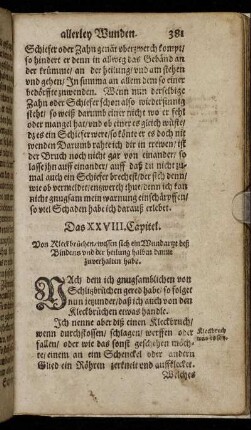 allerley Wunden. 381
Schiefer oder Zahn genär oberzwerch kompt/
so hindert er denn in allweg das Gebänd an
der krümme/ an der heilung/ vnd am stehen
vnd gehen/ In summa an allem dem so einer
bedörffte zuwenden. Wenn nun derselbige
Zahn oder Schiefer schon also widersinnig
steht/ so weiß darumb einer nicht wo er fehl
oder mangel hat/ vnd ob einer es gleich wüste/
dz es ein Schiefer were/ so könte er es doch nit
wenden Darumb rahte ich dir in trewen/ ist
der Bruch noch nicht gar von einander/ so
lasse jhn auff einander/ auff daß du nicht zu-
mal auch ein Schiefer brechest/ der sich denn/
wie ob vermeldet/ zwerch thut/ denn ich kan
nicht gnugsam mein warnung einschärpffen/
so viel Schaden habe ich darauß erlebet.
Das XXVIII. Capitel.
Von Kleckbrüchen/ wessen sich ein Wundartzt deß
Bindens vnd der heilung halben damit
zuverhalten habe.
NAch dem ich gnugsamblichen von
Schlitzbrüchen gered habe/ so folget
nun jetzunder/ daß ich auch von den
Kleckbrüchen etwas handle.
Ich nenne aber diß einen Kleckbruch/
wenn durch stossen/ schlagen/ werffen oder
fallen/ oder wie das sonst geschehen möch-
te/ einem an ein Schenckel oder andern
Glied ein Röhrein zerkneit vnd auffklecket.
Kleckbruch
was es sey.
Welches